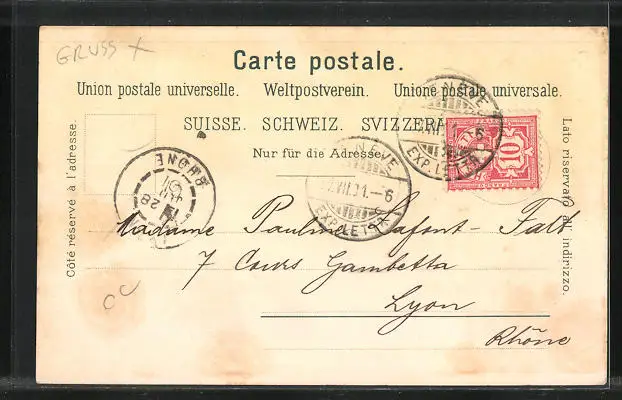 GRUSS
Carte postale.
Union postale universelle. Weltpostverein. Unione postale universale.
SUISSE. SCHWEIZ. SVIZZERA
Nur für die Adresse.
Côté réservé à l'adresse.
Lato riservato all' indirizzo.
10
NÈVE
EXP. LETTR
NÈVE
VII.01.-6
EXP. LETTR
RHONE
28
Madame Pauline Lafont-Falt
7 Cours Gambetta
Lyon
Rhône